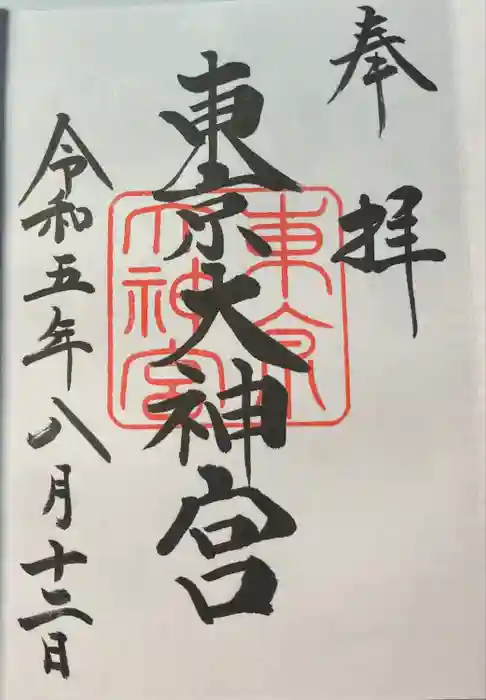 奉拝
東京大神宮
東京
大神宮
令和五年八月十二日